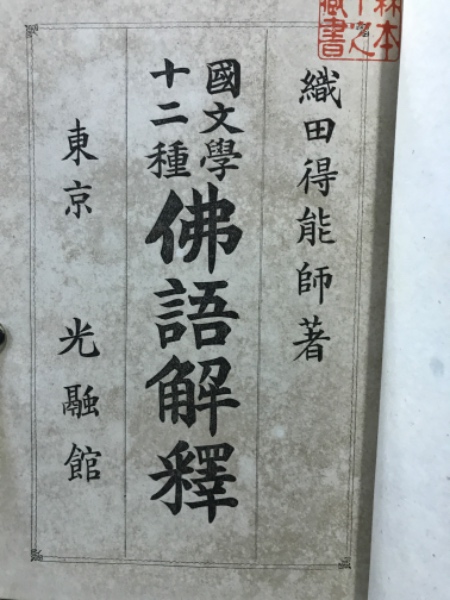 織田得能師著
國文學
十二種
佛語解釋
東京 光融館